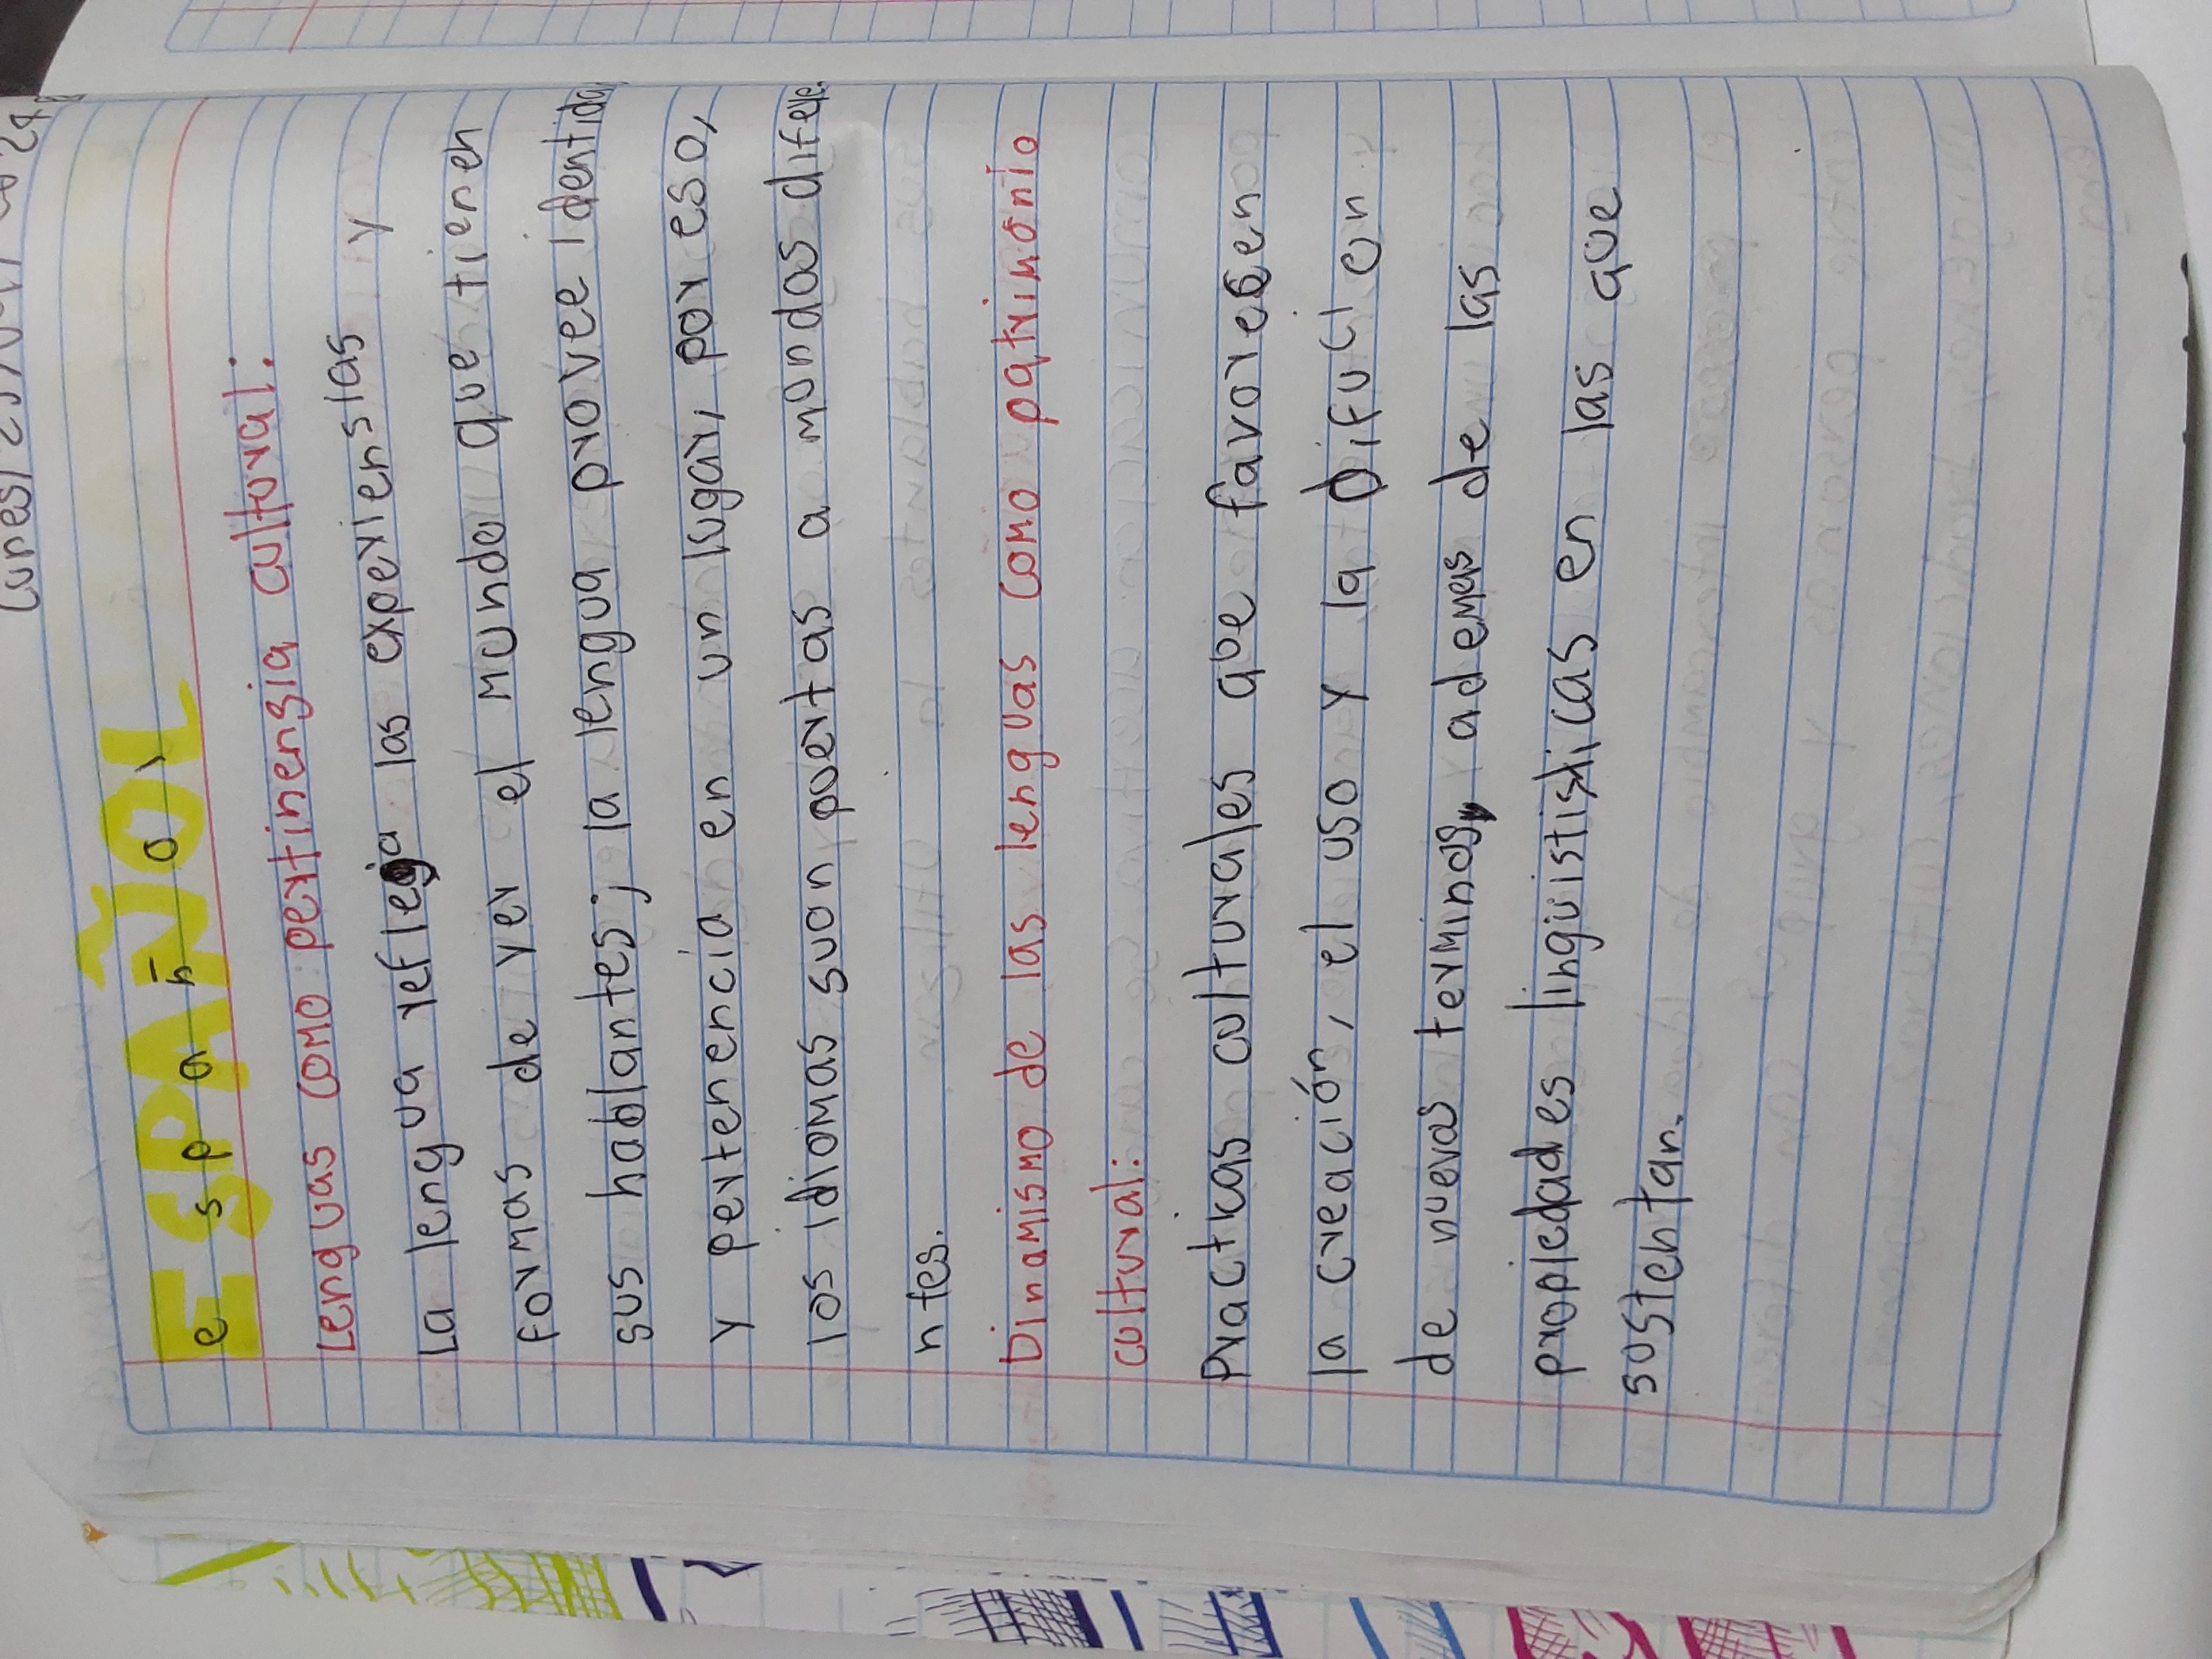 ESPAÑOL
español
Lenguas como pertinensia cultural:
La lengua refleja las experiensias y
formas de ver el mundo que tienen
sus hablantes; la lengua provee identida
y pertenencia en un lugar, por eso,
los idiomas suon puertas a mondos difere
ntes.
Dinamismo de las lenguas como patrimonio
coltural:
Practicas colturales que favoresen
la creación, el uso y la difuci on
de nuevos terminos, ademas de las
propiedades lingüististicas en las que
sustentan.